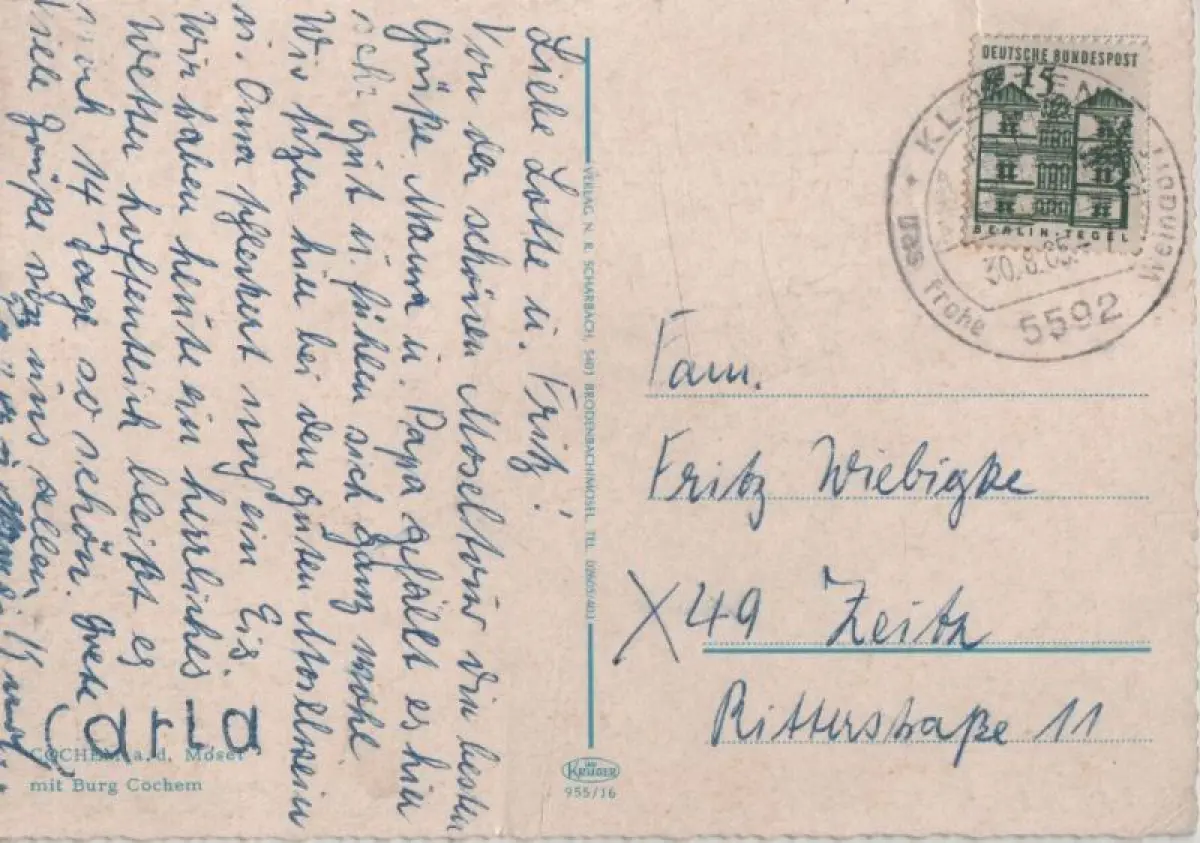 Liebe Lotte u. Fritz!
Von der schönen Moseltour die besten
Grüße. Mama u. Papa gefällt es hier
sehr gut u. fühlen sich ganz wohl
Wir sitzen hier bei den guten Moselwein
u. Oma schleckert noch ein Eis
Wir haben heute ein herrliches
Wetter hoffentlich bleibt es
noch 14 Tage so schön.
Viele Grüße von uns allen
Carla
COCHEM a. d. Mosel
mit Burg Cochem
VERLAG N. R. SCHARBACH, 5401 BRODENBACH/MOSEL, TEL.
KRÜGER
955/16
DEUTSCHE BUNDESPOST
15
BERLIN-TEGEL
das frohe
30.8.65
5592
Fam.
Fritz Wiebigke
X49 Zeitz
Ritterstraße 11